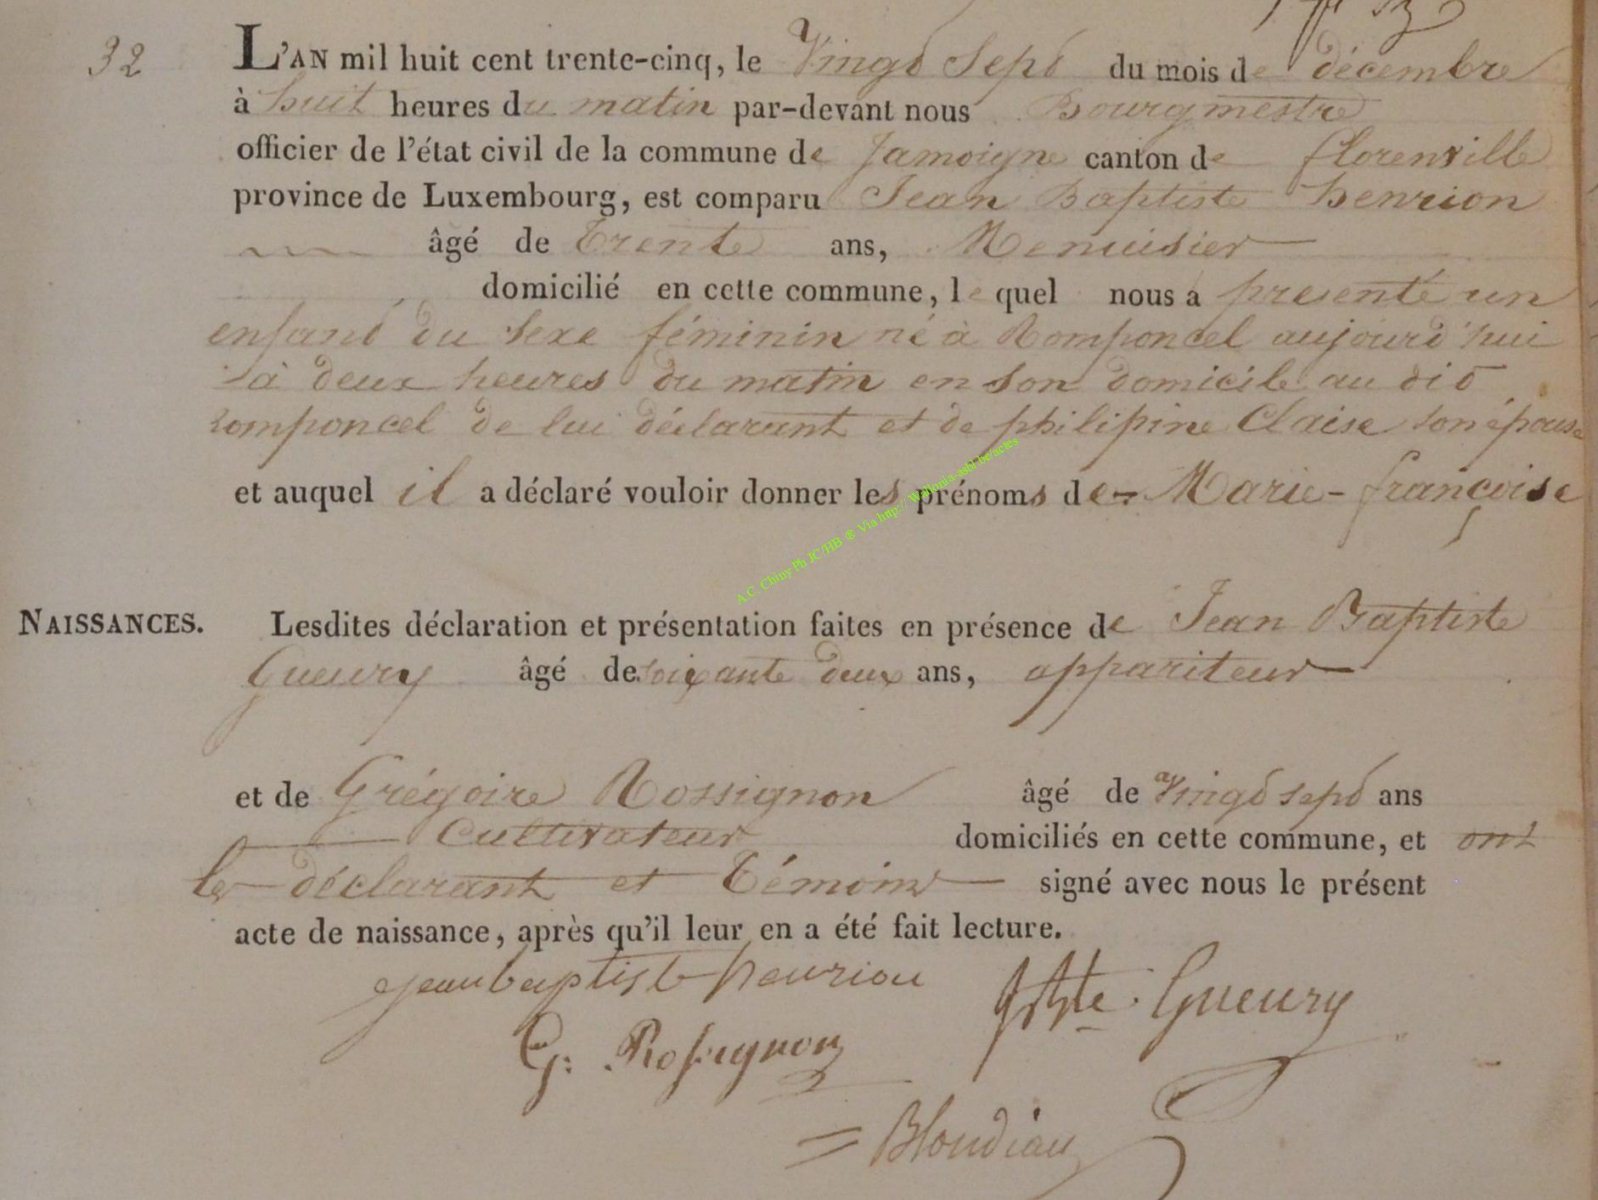 32
L'AN mil huit cent trente-cinq, le Vingt Sept du mois de décembre
à huit heures du matin par-devant nous Bourgmestre
officier de l'état civil de la commune de Jamoigne canton de florenville
province de Luxembourg, est comparu Jean Baptiste henrion
âgé de Trente ans, Menuisier
domicilié en cette commune, lequel nous a presenté un
enfant du sexe féminin né à Romponcel aujourd'hui
à deux heures du matin en son domicile au dit
romponcel de lui déclarant et de philipine Claise son épouse
et auquel il a déclaré vouloir donner les prénoms de Marie-françoise
A.C. Chiny Ph JC/HB ® Via http://Wallonia-asbl.be/actes
NAISSANCES. Lesdites déclaration et présentation faites en présence de Jean Baptiste
Gueury âgé de soixante deux ans, appariteur
et de Grégoire Rossignon âgé de Vingt sept ans
Cultivateur domiciliés en cette commune, et ont
le déclarant et Témoins signé avec nous le présent
acte de naissance, après qu'il leur en a été fait lecture.
jean baptiste henrion
Gueury
G: Rossignon
Blondiau